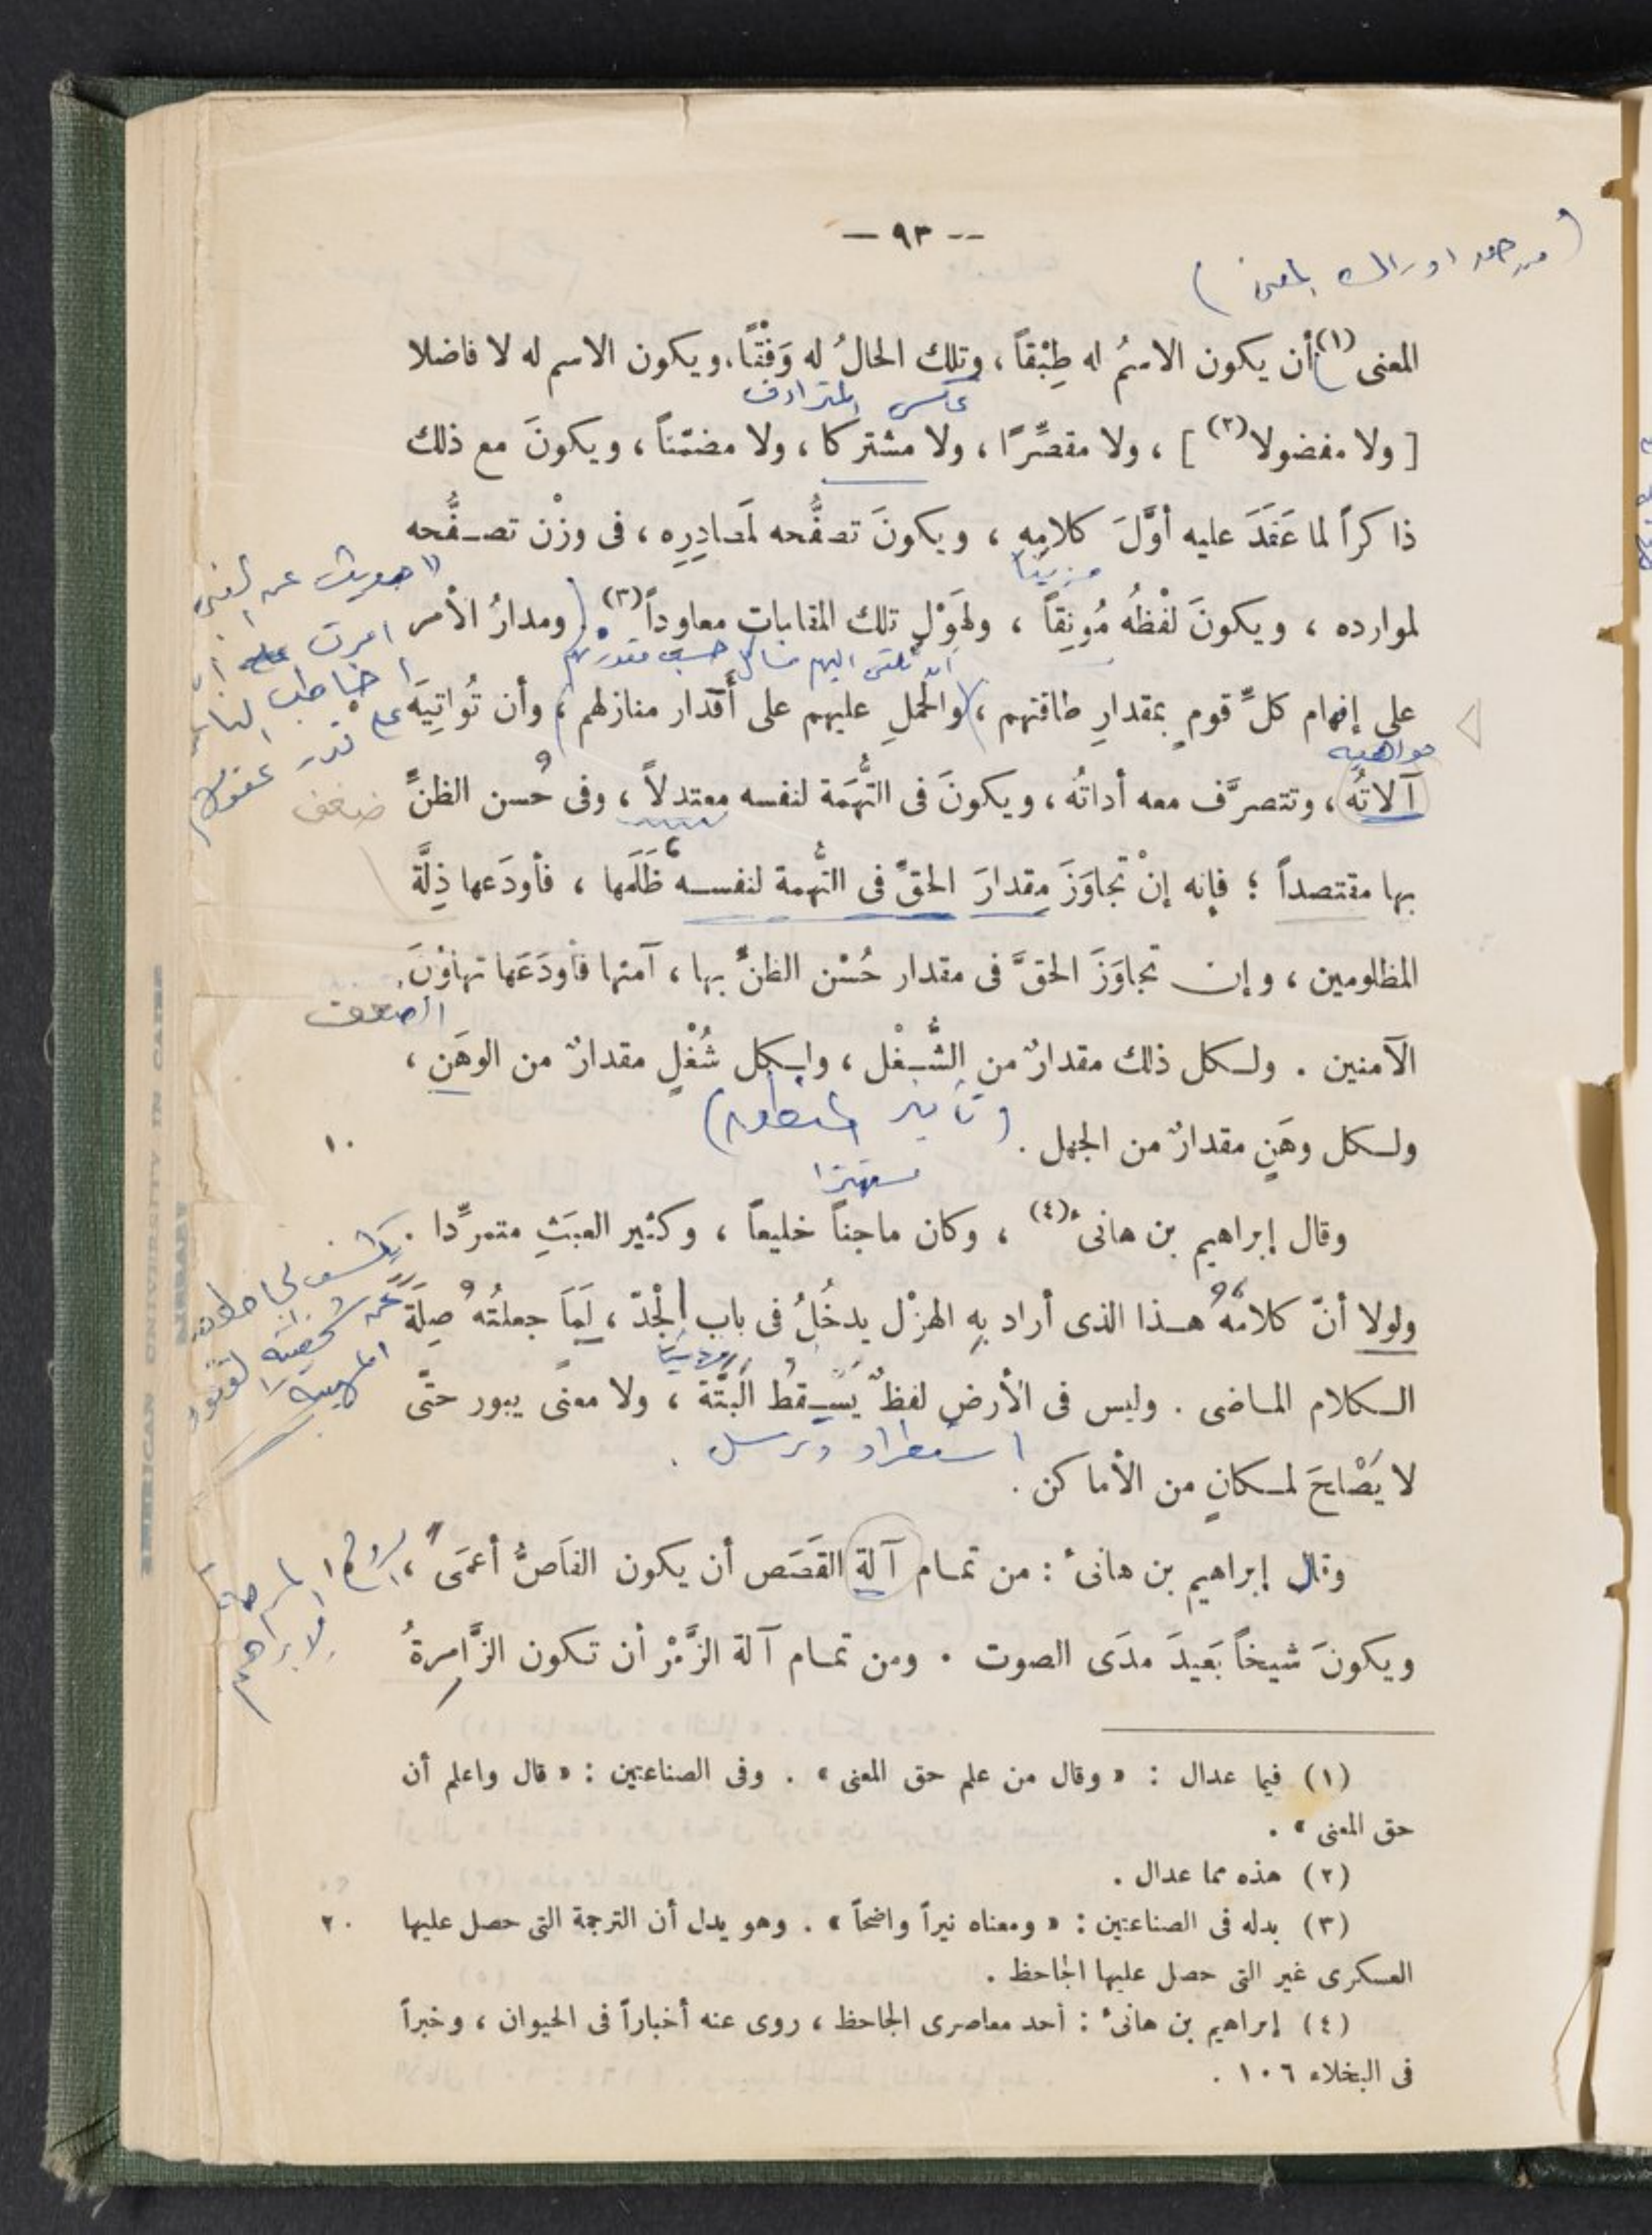 — ٩٣ --
المعنى (١) أن يكون الاسمُ له طِبْقاً ، وتلك الحالُ له وَفْقًا، ويكون الاسم له لا فاضلا
عكس المترادف
[ ولا مفضولا (٢) ] ، ولا مقصِّرًا ، ولا مشتركا ، ولا مضمّناً ، ويكونَ مع ذلك
ذاكراً لما عَقَدَ عليه أوَّلَ كلامِهِ ، ويكونَ تصفُّحه لمَصادِرِه ، فى وزْن تصفُّحه
لموارده ، ويكونَ لفْظُه مُونِقاً ، ولهَوْلِ تلك المقامات معاوداً (٣) . ومدارُ الأمر
على إفهام كلِّ قومٍ بمقدارِ طاقتهم ، والحملِ عليهم على أقدار منازلهم ، وأن تُواتِيَه
مواهبه
آلاتُه ، وتتصرَّف معه أداتُه ، ويكونَ فى التُّهَمَة لنفسه معتدلاً ، وفى حُسن الظنِّ
ضعف
بها مقتصداً ؛ فإنه إنْ تجاوَزَ مِقدارَ الحقِّ فى التُّهمة لنفسه ظَلَمها ، فأودَعها ذِلَّةَ
المظلومين ، وإن تجاوَزَ الحقَّ فى مقدار حُسْن الظنِّ بها ، آمنها فأودَعَها تهاوُنَ
الضعف
الآمنين . ولكل ذلك مقدارٌ من الشُّغْل ، ولكل شُغْلٍ مقدارٌ من الوهَنِ ،
ولكل وهَنٍ مقدارٌ من الجهل .
١٠
مستهترا
وقال إبراهيم بن هانئ (٤) ، وكان ماجناً خليعاً ، وكثير العبَثِ متمرِّدا .
ولولا أنّ كلامَهُ هذا الذى أراد بِهِ الهزْل يدخُلُ فى باب الْجِدّ ، لَمَا جعلتُه صِلَةَ
الكلام الماضى . وليس فى الأرضِ لفظٌ يَسْقطُ البَتَّةَ ، ولا معنًى يبور حتَّى
استطراد وترسل .
لا يَصْلحَ لمكانٍ من الأماكن .
وقال إبراهيم بن هانئ : من تمام آلة القَصَص أن يكون القاصُّ أعمَى ،
ويكونَ شيخاً بَعيدَ مدَى الصوت . ومن تمام آلة الزَّمْر أن تكون الزَّامرةُ
(١) فيما عدال : « وقال من علم حق المعنى » . وفى الصناعتين : « قال واعلم أن
حق المعنى » .
(٢) هذه مما عدال .
(٣) بدله فى الصناعتين : « ومعناه نيراً واضحاً » . وهو يدل أن الترجمة التى حصل عليها
٢٠
العسكرى غير التى حصل عليها الجاحظ .
(٤) إبراهيم بن هانئ : أحد معاصرى الجاحظ ، روى عنه أخباراً فى الحيوان ، وخبراً
فى البخلاء ١٠٦ .